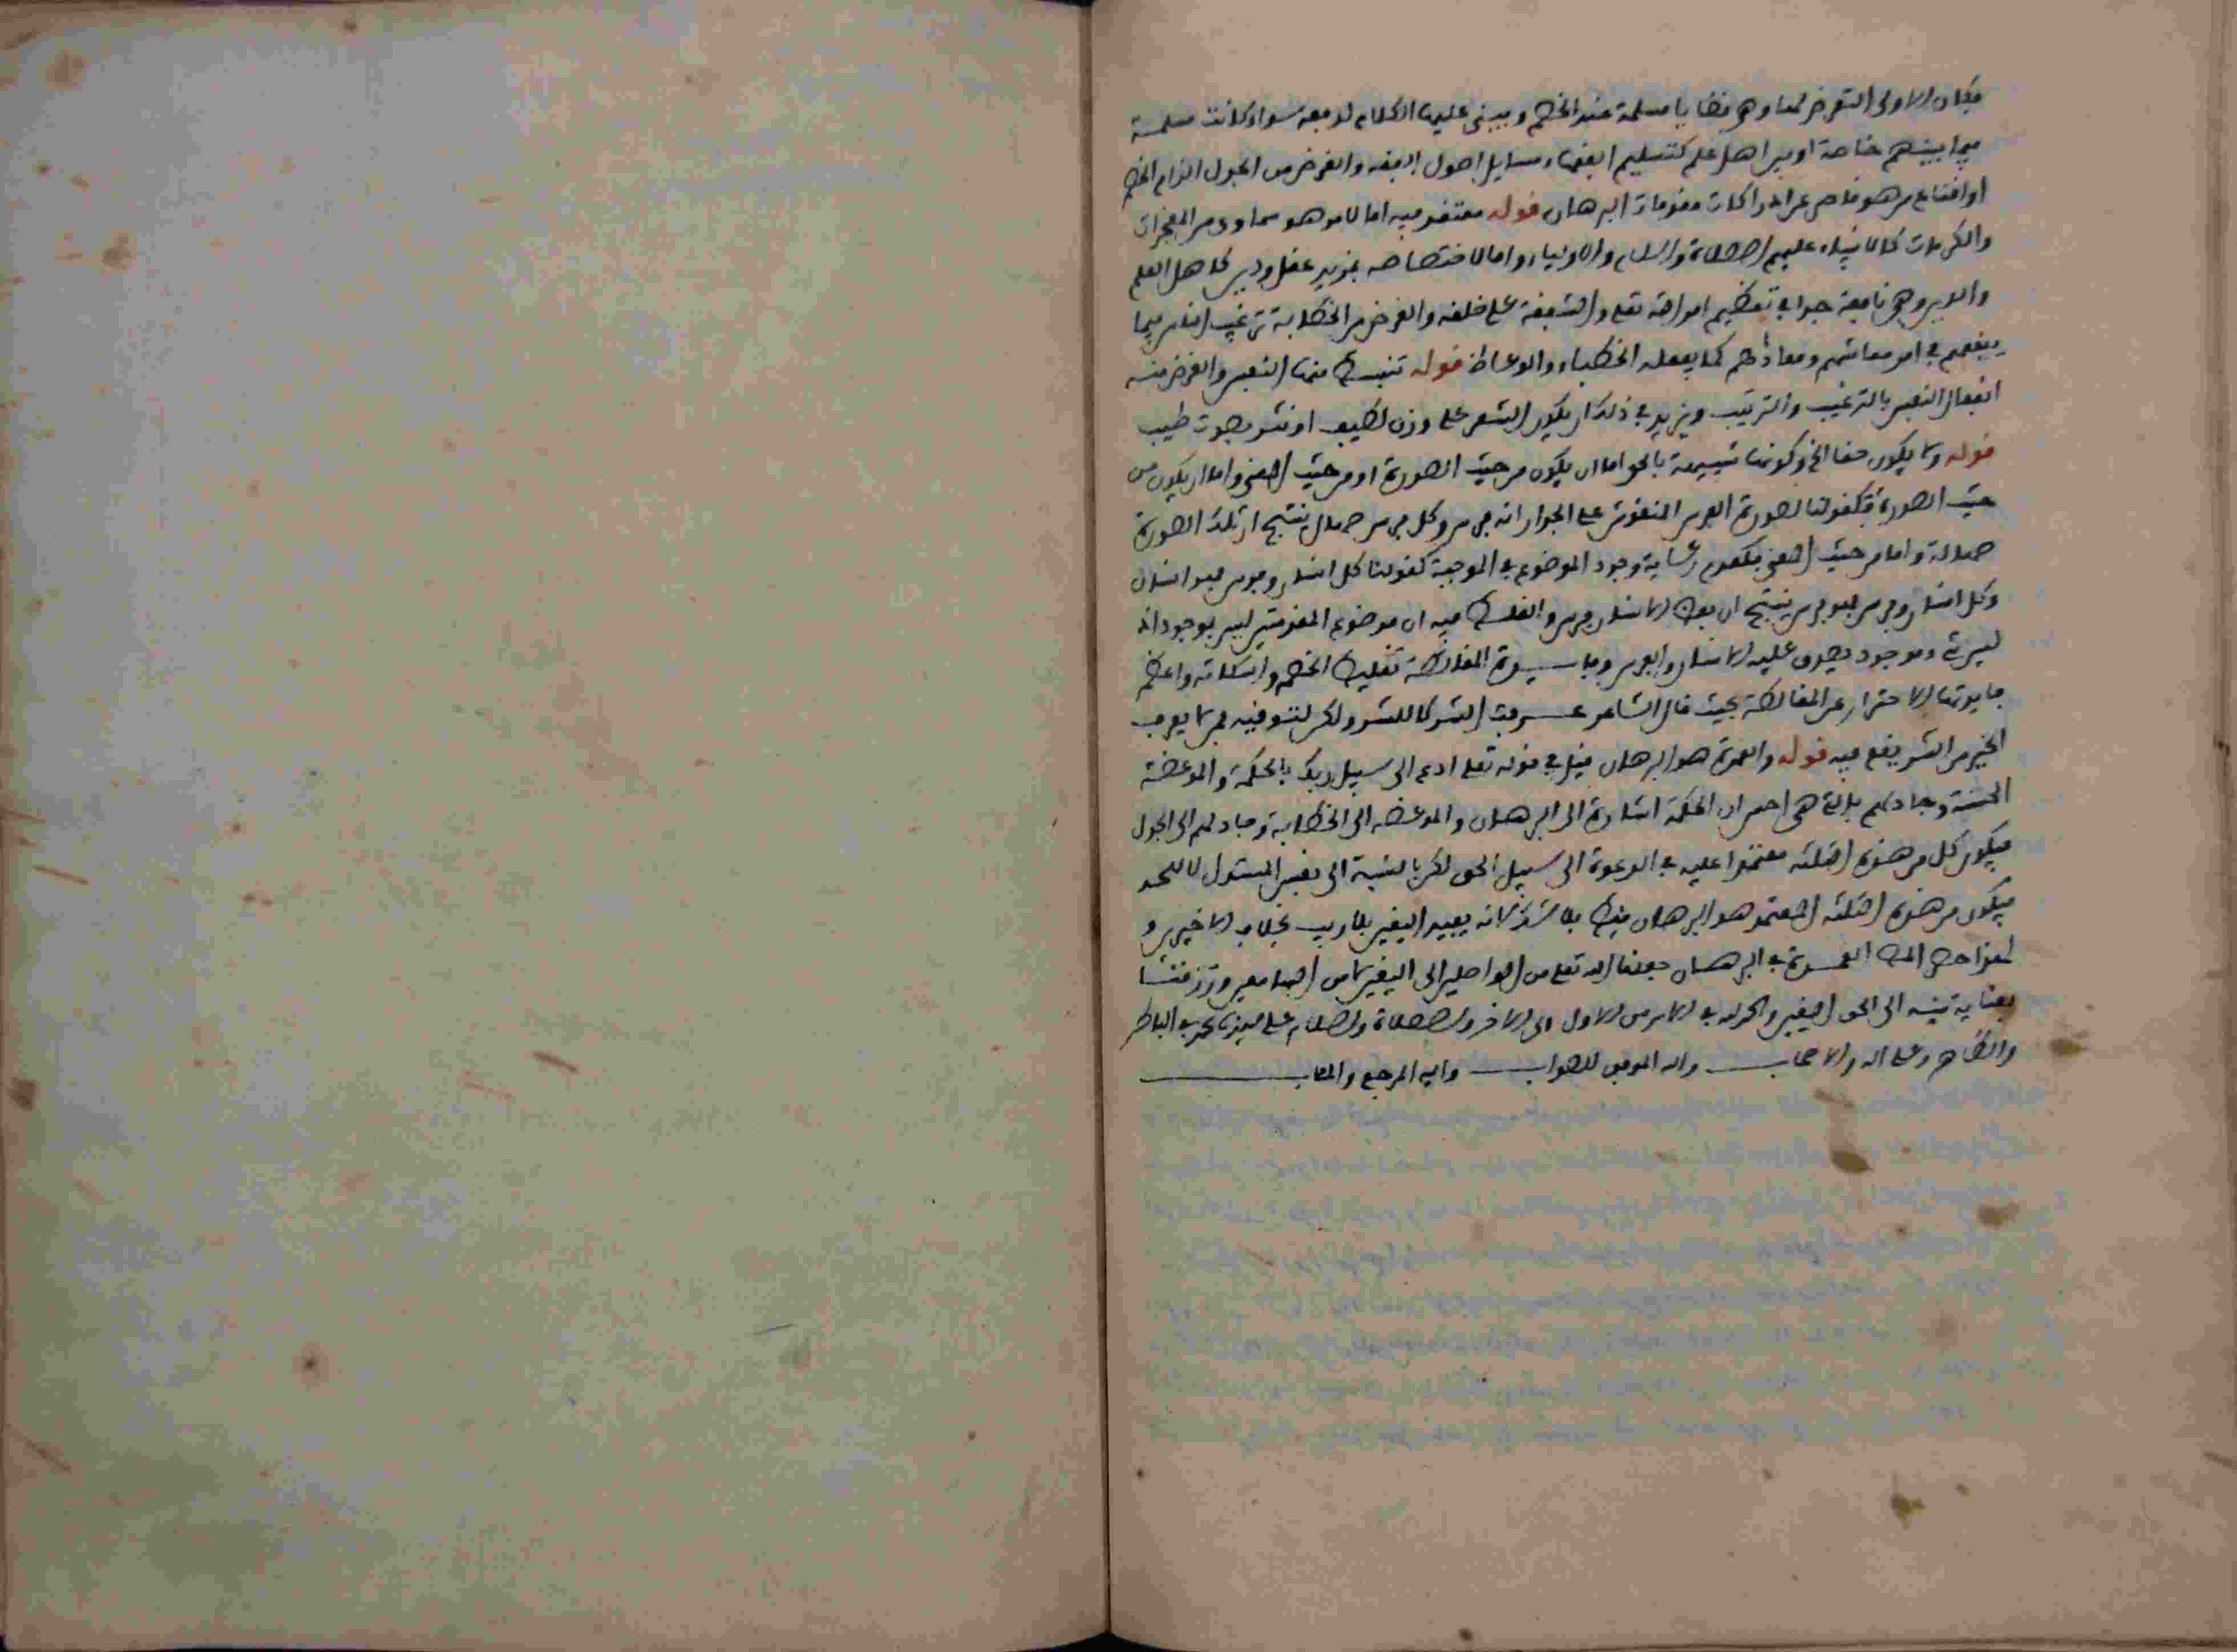 فكان الاولى التعرض لها وهي قضايا مسلمة عند الخصم ويبنى عليها الكلام لدفعه سواء كانت مسلمة
فيما بينهم خاصة او بين اهل علم كتسليم الفقهاء مسايل اصول الفقه والغرض من الجدل الزام الخصم
او اقناع من هو قاصر عن ادراكات مقدمات البرهان قوله معتقد فيه اما لامر هو سماوي من المعجزات
والكرامات كالانبياء عليهم الصلاة والسلام والاولياء واما لاختصاصه بمزيد عقل ودين كاهل العلم
والدين وهي نافعة جدا في تعظيم امر الله تعلى والشفقة على خلقه والغرض من الخطابة ترغيب الناس فيما
ينفعهم في امر معاشهم ومعادهم كما يفعله الخطباء والوعاظ قوله تنبسط منها النفس والغرض منه
انفعال النفس بالترغيب والترتيب ويزيد في ذلك ان يكون الشعر على وزن لطيف او نشد بصوت طيب
قوله ولا يكون حقا الخ وكونها شبيهة بالحق اما ان يكون من حيث الصورة او من حيث المعنى واما ان يكون من
حيث الصورة فكقولنا لصورة الفرس المنقوش على الجدار انه فرس وكل فرس صهال ينتج ان تلك الصورة
صهالة واما من حيث المعنى فكعدم رعاية وجود الموضوع في الموجبة كقولنا كل انسان وفرس فهو انسان
وكل انسان وفرس فهو فرس ينتج ان بعض الانسان فرس والغلط فيه ان موضوع المقدمتين ليس بموجود اذ
ليس شيء موجود يصدق عليه الانسان والفرس وفايدة المغالطة تغليط الخصم واسكاته واعظم
فايدتها الاحتراز عن المغالطة بحيث قال الشاعر عرفت الشر لا للشر ولكن لتوقيه فمن لا يعرف
الخير من الشر يقع فيه قوله والعمدة هو البرهان قيل في قوله تعلى ادع الى سبيل ربك بالحكمة والموعضة
الحسنة وجادلهم بالتي هي احسن ان الحكمة اشارة الى البرهان والموعضة الى الخطابة وجادلهم الى الجدل
فيكون كل من هذه الثلثه معتمدا عليه في الدعوة الى سبيل الحق لكن بالنسبة الى نفس المستدل لا للخصم
فيكون من هذه الثلثه المعتمد هو البرهان فقط بلا شك لانه يفيد اليقين بلا ريب بخلاف الاخيرين و
لهذا حصر المص العمدة في البرهان جعلنا الله تعلى من الواصلين الى اليقين لا من السامعين ورزقنا
بعناية نبيه الى الحق اليقين والحمد لله في الامر من الاول الى الاخر والصلاة والسلام على سيدنا محمد في الباطن
والظاهر وعلى اله والاصحاب والله الموفق للصواب واليه المرجع والمئاب